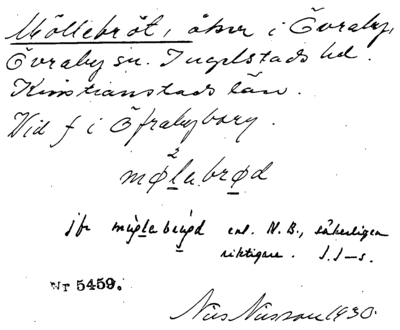 Möllebröt, åker i Övraby,
Övraby sn. Ingelstads hd.
Kristianstads län.
Vid f i Öfrabyborg.
2
møl̲a brø̲d
jfr enl. N. B., säkerligen
riktigare. I. I-s.
Nr 5459.
Nils Nilsson 1930.